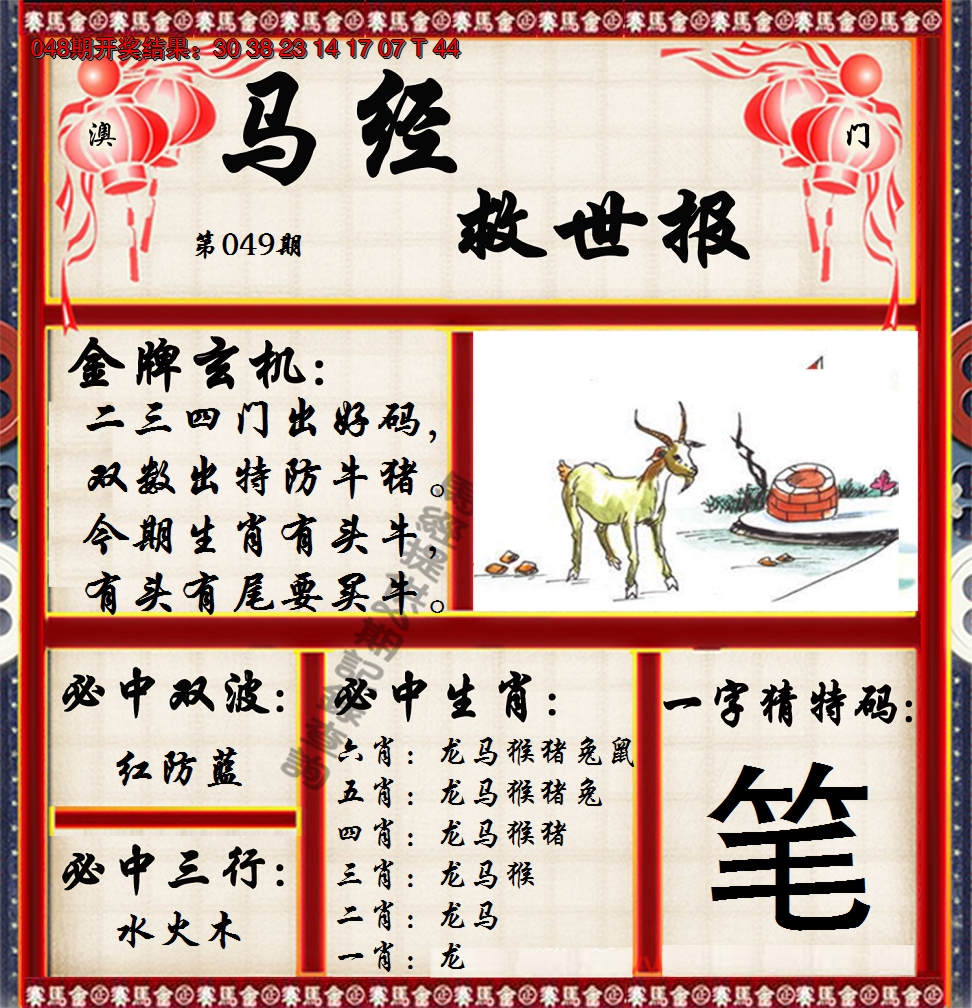 048期开奖结果：30 38 23 14 17 07 T 44
澳
门
马经
救世报
第049期
金牌玄机：
二三四门出好码，
双数出特防牛猪。
今期生肖有头牛，
有头有尾要买牛。
必中双波：
红防蓝
必中三行：
水火木
必中生肖：
六肖：龙马猴猪兔鼠
五肖：龙马猴猪兔
四肖：龙马猴猪
三肖：龙马猴
二肖：龙马
一肖：龙
一字猜特码：
笔